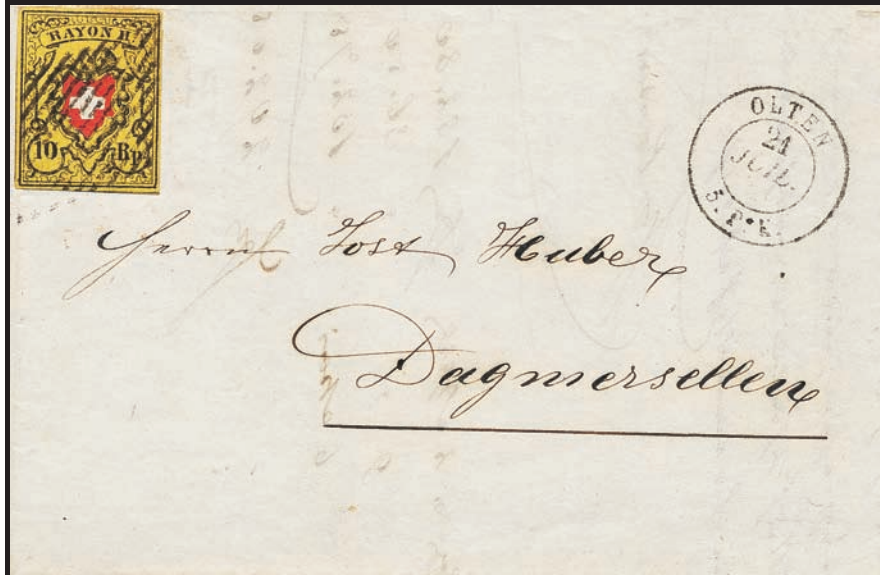 RAYON II
10 Rp.
OLTEN
21
JUIL.
Herrn Jost Huber
Dagmersellen